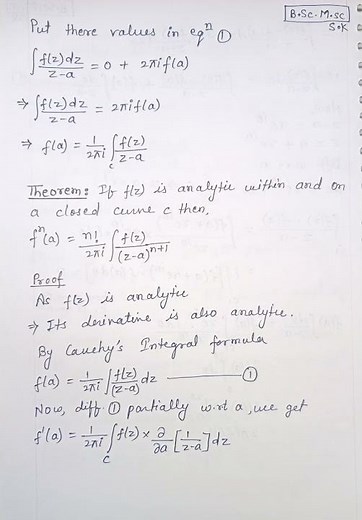 B.Sc. M.Sc
S.K
Put there values in eqⁿ ①
∫ f(z)dz / z-a = 0 + 2πi f(a)
⇒ ∫ f(z)dz / z-a = 2πi f(a)
⇒ f(a) = 1/2πi ∫_c f(z) / z-a
Theorem: If f(z) is analytic within and on
a closed curve c then,
fⁿ(a) = n!/2πi ∫ f(z) / (z-a)ⁿ⁺¹
Proof
As f(z) is analytic
⇒ Its derivative is also analytic.
By Cauchy's Integral formula
f(a) = 1/2πi ∫ f(z)/(z-a) dz ——— ①
Now, diff. ① partially w.r.t a, we get
f'(a) = 1/2πi ∫_C f(z) × ∂/∂a [1/z-a] dz